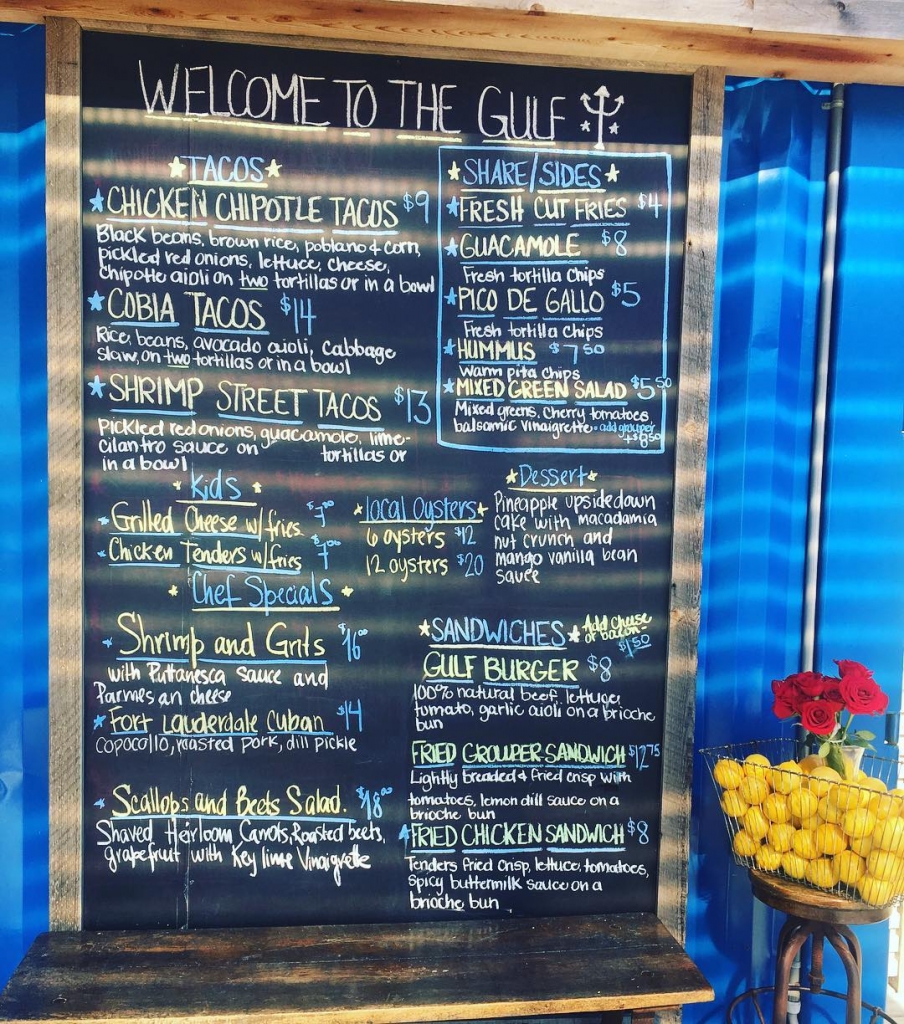 WELCOME TO THE GULF
TACOS
CHICKEN CHIPOTLE TACOS $9
Black beans, brown rice, poblano & corn,
pickled red onions, lettuce, cheese,
chipotle aioli on two tortillas or in a bowl
COBIA TACOS $14
Rice, beans, avocado aioli, Cabbage
slaw, on two tortillas or in a bowl
SHRIMP STREET TACOS $13
Pickled red onions, guacamole, lime-
cilantro sauce on tortillas or
in a bowl
SHARE/SIDES
FRESH CUT FRIES $4
GUACAMOLE $8
Fresh tortilla Chips
PICO DE GALLO $5
Fresh tortilla chips
HUMMUS $7.50
Warm pita Chips
MIXED GREEN SALAD $5.50
Mixed greens, Cherry tomatoes,
balsamic vinaigrette - add grouper
+$8.50
Kids
Grilled Cheese w/fries $7.00
Chicken Tenders w/fries $7.00
local Oysters
6 oysters $12
12 oysters $20
Dessert
Pineapple upsidedown
cake with macadamia
nut crunch and
mango vanilla bean
sauce
Chef Specials
Shrimp and Grits $16.00
with Puttanesca sauce and
Parmesan cheese
Fort Lauderdale Cuban $14
Copocollo, roasted pork, dill pickle
Scallops and Beets Salad. $18.00
Shaved Heirloom Carrots, Roasted beets,
grapefruit with Key lime Vinaigrette
SANDWICHES
Add cheese
or bacon -
$1.50
GULF BURGER $8
100% natural beef, lettuce,
tomato, garlic aioli on a brioche
bun
FRIED GROUPER SANDWICH $12.75
Lightly breaded & fried crisp with
tomatoes, lemon dill sauce on a
brioche bun
FRIED CHICKEN SANDWICH $8
Tenders fried crisp, lettuce, tomatoes,
spicy buttermilk sauce on a
brioche bun